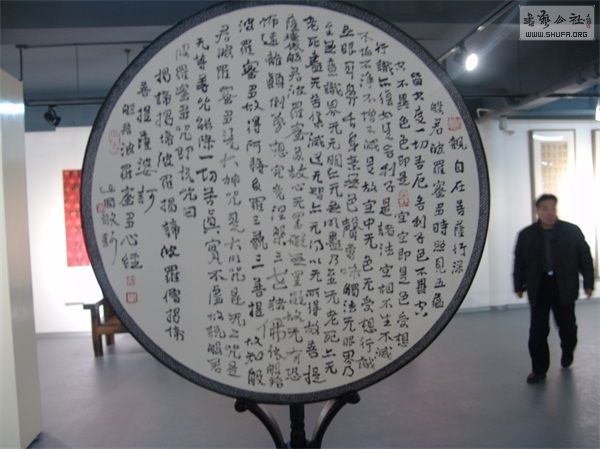 觀自在菩薩行深
般若波羅蜜多時照見五蘊
皆空度一切苦厄舍利子色不異空
空不異色色即是空空即是色受想
行識亦復如是舍利子是諸法空相不生不滅
不垢不淨不增不減是故空中无色无受想行識
无眼耳鼻舌身意无色聲香味觸法无眼界乃
至无意識界无无明亦无无明盡乃至无老死亦无
老死盡无苦集滅道无智亦无得以无所得故菩提
薩埵依般若波羅蜜多故心无罣礙无罣礙故无有恐
怖遠離顛倒夢想究竟涅槃三世諸佛依般若
波羅蜜多故得阿耨多羅三藐三菩提故知般
若波羅蜜多是大神咒是大明咒是无上咒是
无等等咒能除一切苦真實不虛故說般若
波羅蜜多咒即說咒曰
揭諦揭諦波羅揭諦波羅僧揭諦
菩提薩婆訶
般若波羅蜜多心經
書藝公社
WWW.SHUFA.ORG